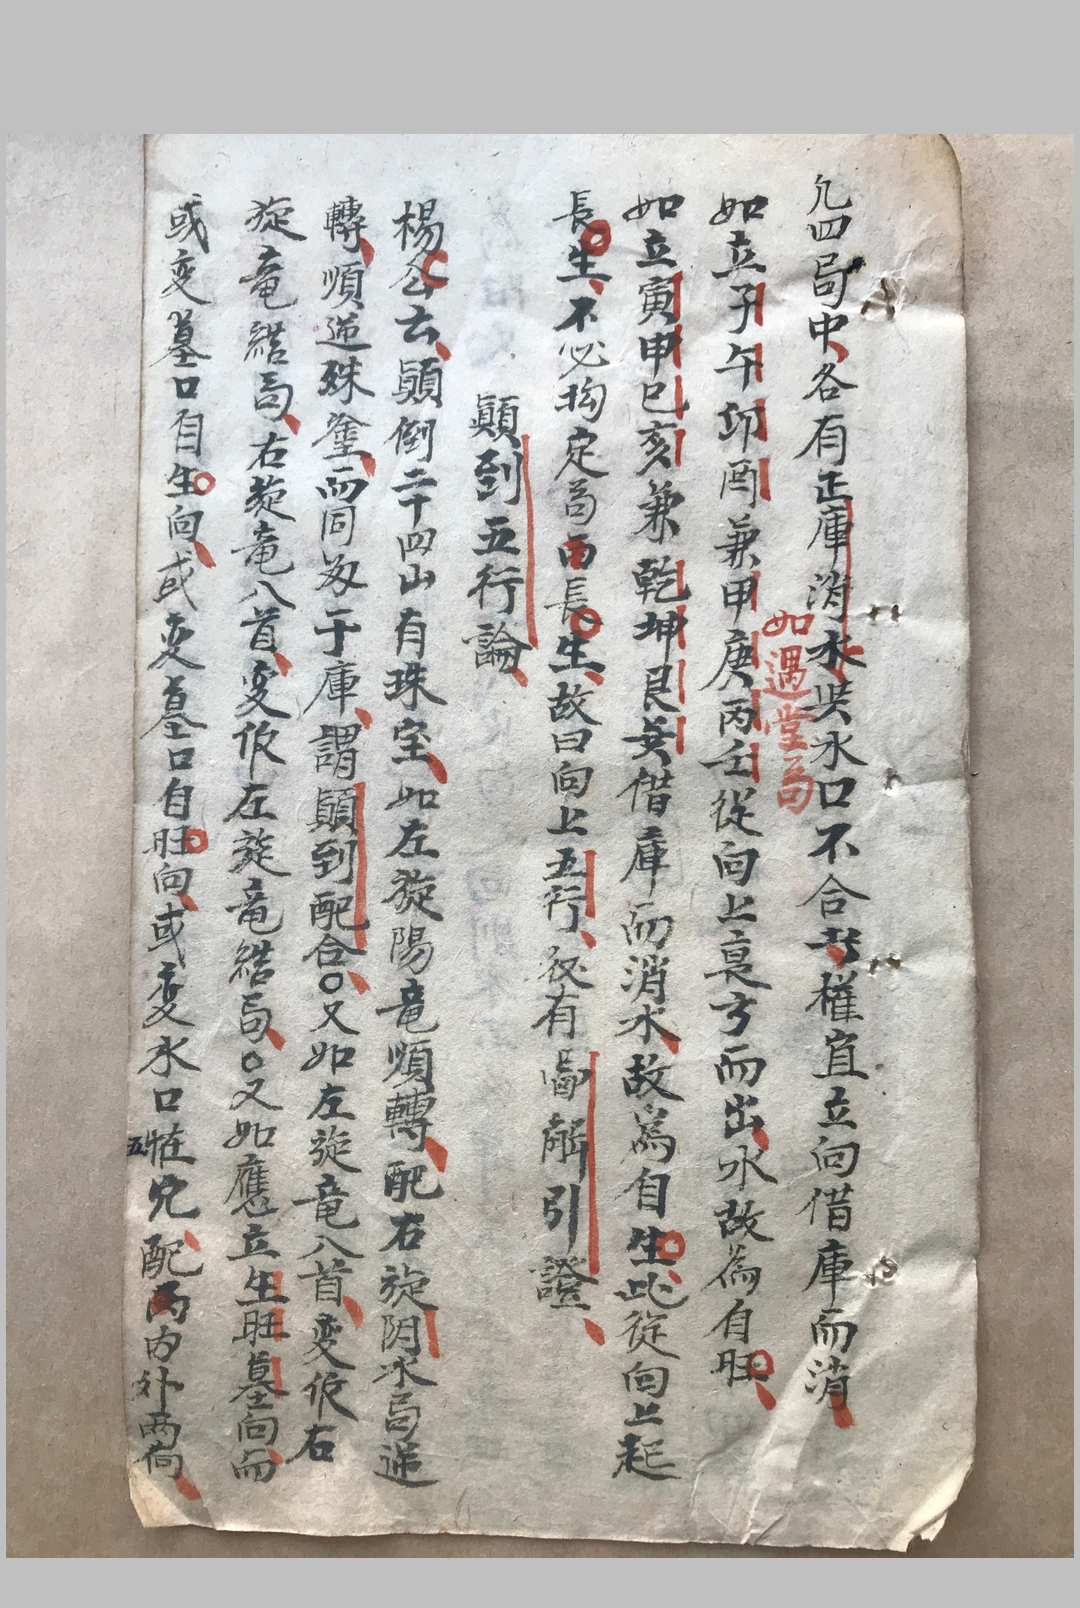 凢四局中各有正庫消水吴水口不合者權宜立向借庫而消
如遇堂局
如立子午卯酉兼甲庚丙壬從向上衰方而出水故為自旺
如立寅申巳亥兼乾坤艮巽借庫而消水故爲自生此從向上起
長生不必拘定局內長生故曰向上五行秘有啚解引證
顛到五行論
楊公云顛倒二十四山有珠宝如左旋陽竜順轉配右旋阴水局逆
轉順逆殊塗而同𣱵于庫謂顛到配合〇又如左旋竜八首变作右
旋竜結局右旋竜八首变作左旋竜結局〇又如應立生旺墓向而
或变墓口自生向或变墓口自旺向或变水口
五
配內外兩向